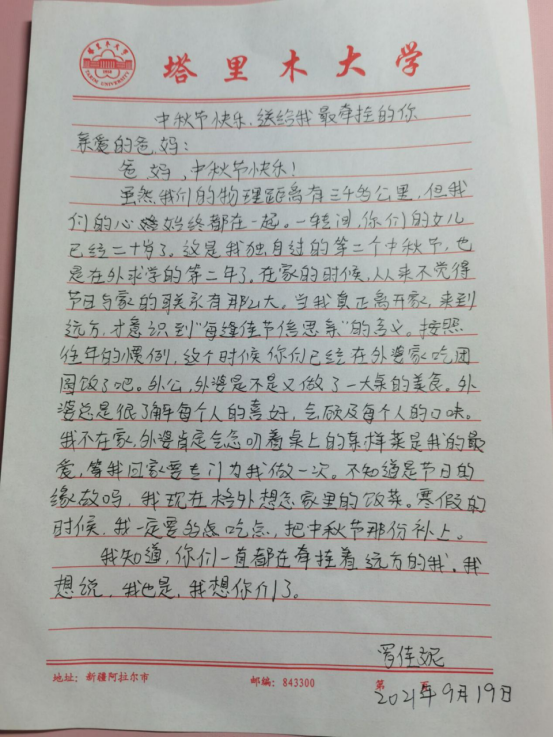 塔里木大学
TARIM UNIVERSITY
塔里木大学
中秋节快乐,送给我最牵挂的你
亲爱的爸妈:
爸妈,中秋节快乐!
虽然我们的物理距离有三千多公里,但我
们的心始终都在一起。一转间,你们的女儿
已经二十岁了。这是我独自过的第二个中秋节,也
是在外求学的第二年了。在家的时候,从来不觉得
节日与家的联系有那么大。当我真正离开家,来到
远方,才意识到“每逢佳节倍思亲”的含义。按照
往年的惯例,这个时候你们已经在外婆家吃团
圆饭了吧。外公,外婆是不是又做了一大桌的美食。外
婆总是很了解每个人的喜好,会顾及每个人的口味。
我不在家,外婆肯定会念叨着桌上的某样菜是我的最
爱,等我回家要专门为我做一次。不知道是节日的
缘故吗,我现在格外想念家里的饭菜。寒假的
时候,我一定要多吃点,把中秋节那份补上。
我知道,你们一直都在牵挂着远方的我。我
想说,我也是,我想你们了。
罗佳妮
地址:新疆阿拉尔市 邮编:843300 第 页
2021年9月19日